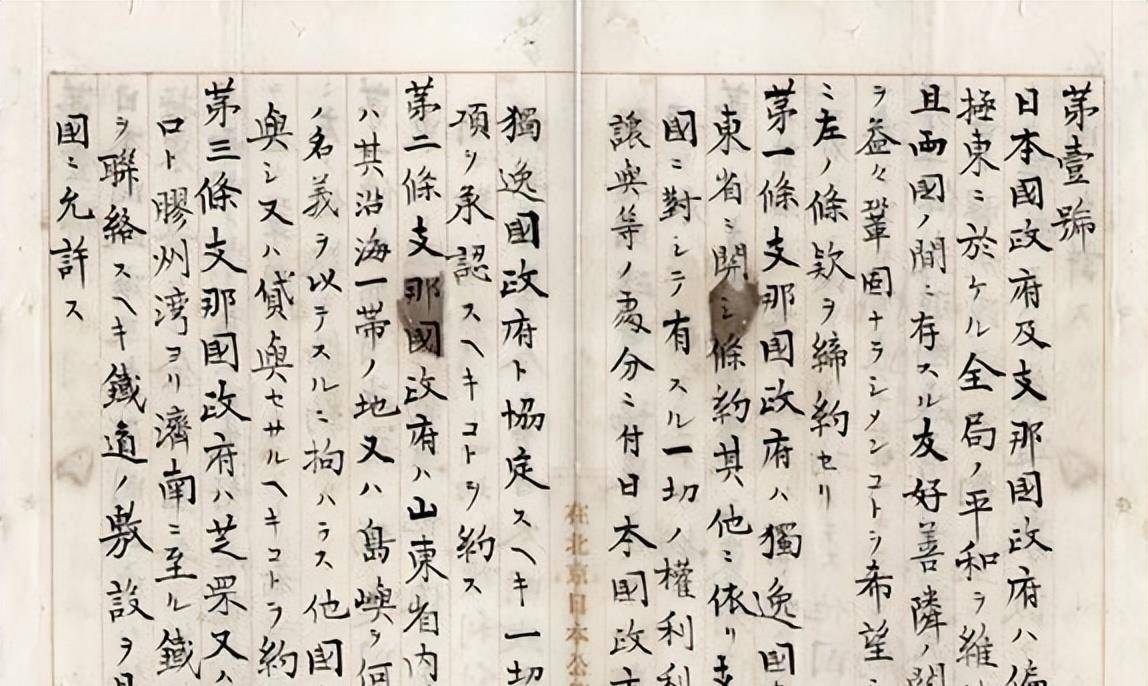 第壹號
日本國政府及支那國政府ハ偏
極東ニ於ケル全局ノ平和ヲ維
且両國ノ間ニ存スル友好善隣ノ関
ラ益々鞏固ナラシメンコトヲ希望シ
ニ左ノ條欵ヲ締約セリ
第一條支那國政府ハ獨逸國
東省ニ関シ條約其他ニ依リ
國ニ對シテ有スル一切ノ權利利
譲與等ノ處分ニ付日本國政
在北京日本公
獨逸國政府ト協定スヘキ一切
項ヲ承認スヘキコトヲ約ス
第二條支那國政府ハ山東省内
ハ其沿海一帯ノ地又ハ島嶼ヲ何
ノ名義ヲ以テスルニ拘ハラス他國
與シ又ハ貸與セサルヘキコトヲ約
第三條支那國政府ハ芝罘又ハ
口ト膠州湾ヨリ濟南ニ至ル鐵
ヲ聯絡スヘキ鐵道ノ敷設ヲ日
國ニ允許ス